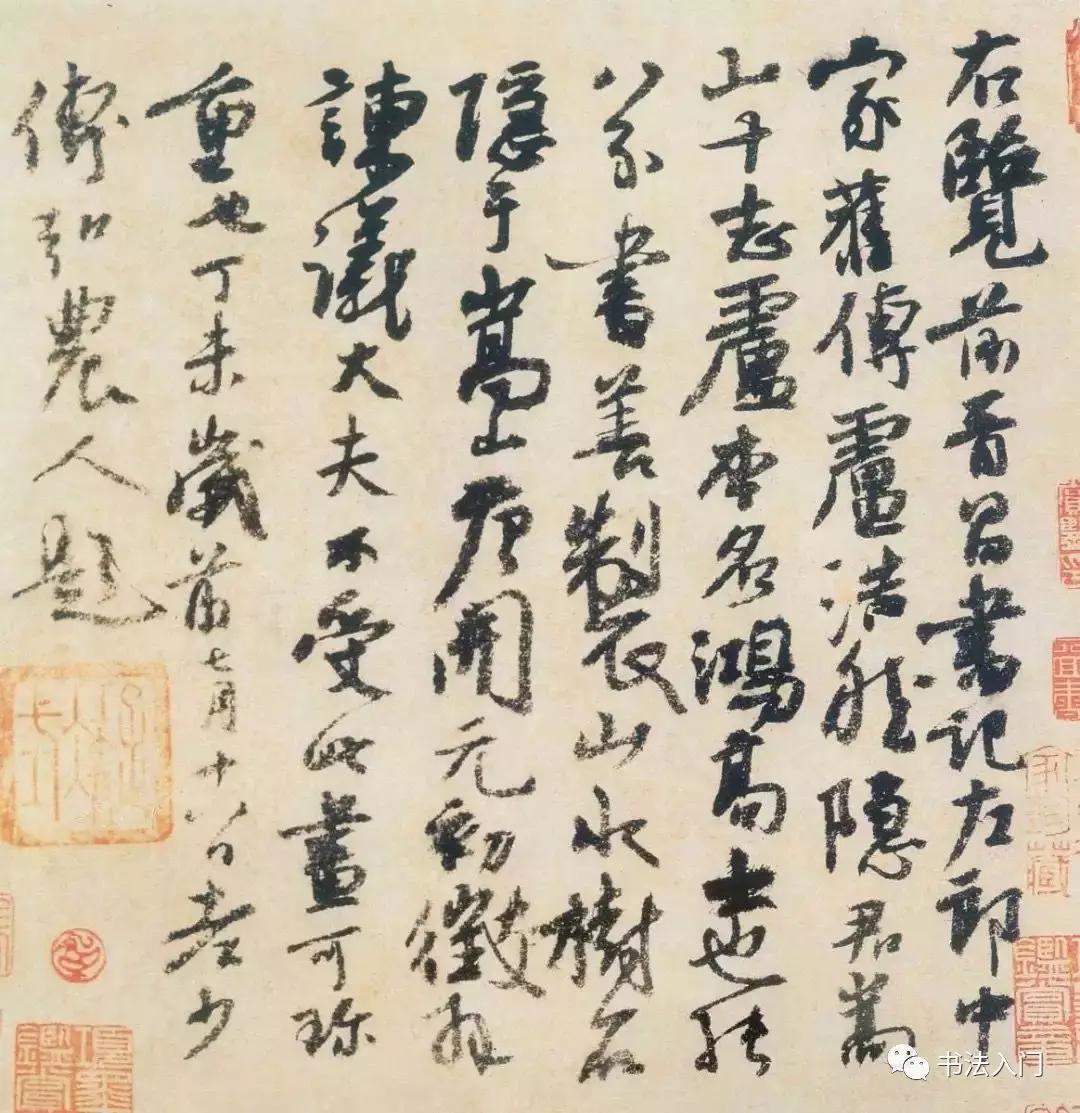 右覽前晉昌書記左郎中
家舊傳盧浩然隱居嵩
山十志盧本名鴻高士也能
八分書善製山水樹石
隱于嵩山唐開元初徵拜
諫議大夫不受此畫可珎
重也丁未歲前七月十八日老少
傅弘農人題
書法入门